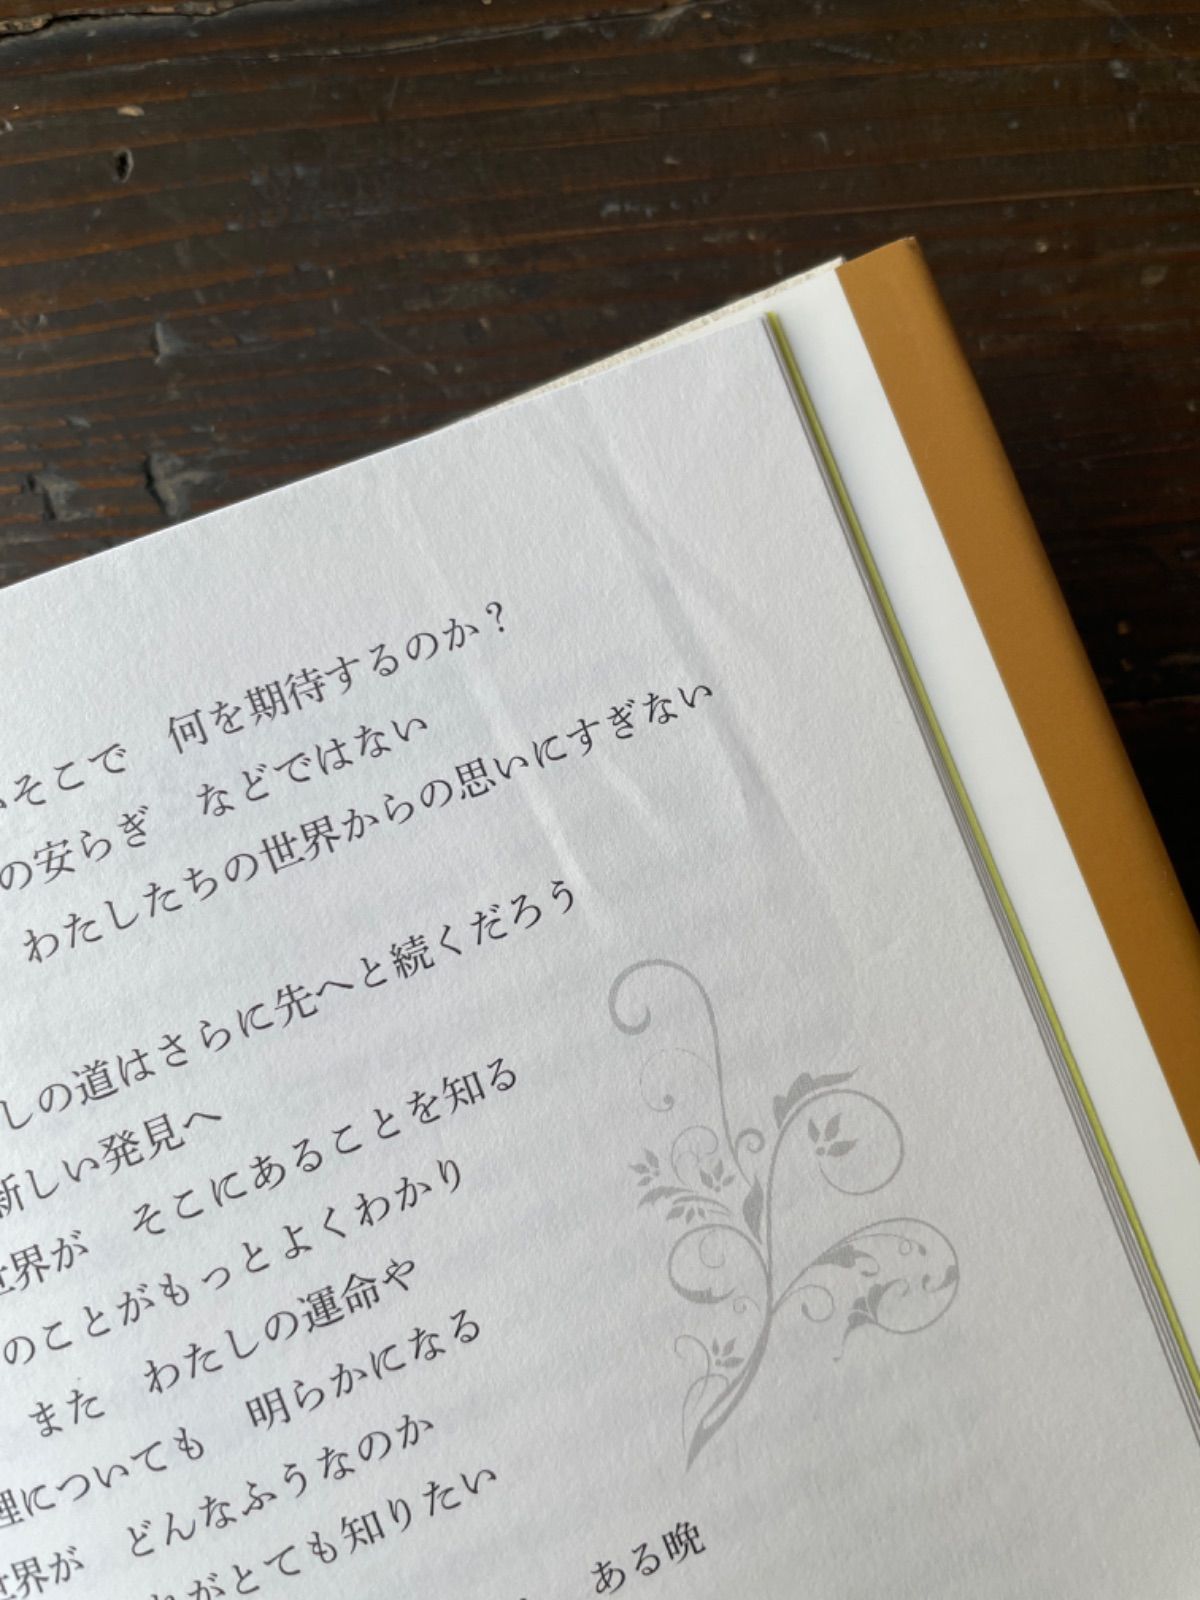 そこで　何を期待するのか？
の安らぎ　などではない
わたしたちの世界からの思いにすぎない
しの道はさらに先へと続くだろう
新しい発見へ
世界が　そこにあることを知る
のことがもっとよくわかり
また　わたしの運命や
理についても　明らかになる
世界が　どんなふうなのか
がとても知りたい
ある晩